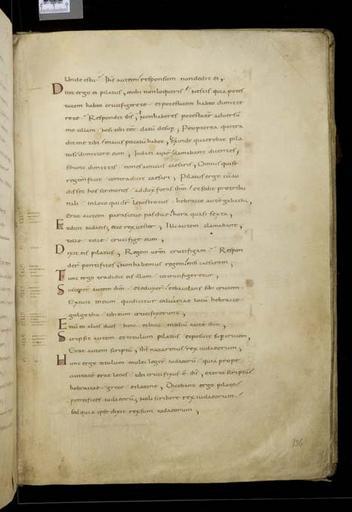 Unde es tu. Ihs autem responsum non dedit ei,
Dicit ergo ei pilatus, mihi non loqueris? nescis quia potes
tatem habeo crucifigere te et potestatem habeo dimitte
re te. Respondit ihs, non haberes potestatem adversū
me ullam nisi tibi esset datū desup, Propterea qui tra
didit me tibi maius peccatū habet, Exinde querebat pila
tus dimittere eum, Iudei autē clamabant dicentes,
si hunc dimittis non es amicus caesaris, Omnis qui se
regem facit contradicit caesari, Pilatus ergo cū au
disset hos sermones adduxit foras ihm et sedit pro tribu
nali in loco qui dr lithostrotus hebraice autē gabatha,
Erat autem parasceue paschae hora quasi sexta,
Et dicit iudaeis, ecce rex uester, Illi autem clamabant,
tolle tolle crucifige eum,
Dixit eis pilatus, Regem urm crucifigam? Respon
derunt pontifices, non habemus regem nisi caesarem,
Tunc ergo tradidit eis illum ut crucifigeretur,
Susceper autem ihm et eduxer, et baiulans sibi crucem
Exiuit in eum qui dicitur caluariae locū hebraice
golgotha ubi eum crucifixerunt,
Et cum eo alios duos hinc et hinc mediū autē ihm,
Scripsit autem et titulum pilatus et posuit super crucem,
Erat autem scriptū, ihs nazarenus rex iudaeorum,
Hunc ergo titulum multi legerunt iudaeorū quia prope
ciuitatē erat locus ubi crucifixus ē ihs, et erat scriptū
hebraice grece et latine, Dicebant ergo pilato
pontifices iudaeorū, noli scribere rex iudaeorum
sed quia ipse dixit rex sum iudaeorum,